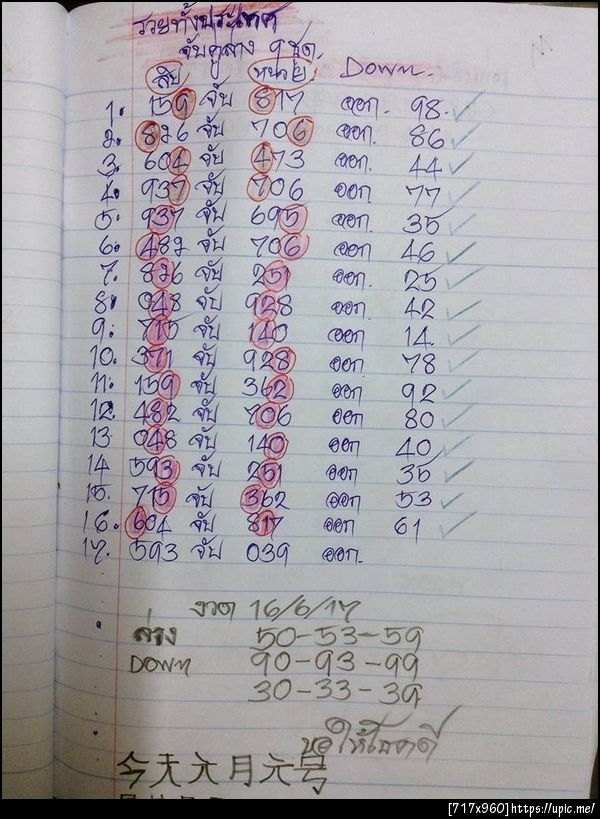 รวยทั้งประเทศ
จับคู่ล่าง 9 ชุด.
สิบ หน่วย Down.
1. 159 จับ 817 ออก. 98
2. 826 จับ 706 ออก. 86
3. 604 จับ 473 ออก. 44
4. 937 จับ 706 ออก. 77
5. 937 จับ 695 ออก. 35
6. 482 จับ 706 ออก 46
7. 826 จับ 251 ออก. 25
8. 048 จับ 928 ออก. 42
9. 715 จับ 140 ออก 14
10. 371 จับ 928 ออก 78
11. 159 จับ 362 ออก 92
12. 482 จับ 706 ออก 80
13 048 จับ 140 ออก 40
14 593 จับ 251 ออก 35
15. 715 จับ 362 ออก 53
16. 604 จับ 817 ออก 61
17. 593 จับ 039 ออก.
งวด 16/6/17
ล่าง 50-53-59
DOWN 90-93-99
30-33-39
ขอให้โชคดี
今天元月元号
[717x960]https://upic.me/